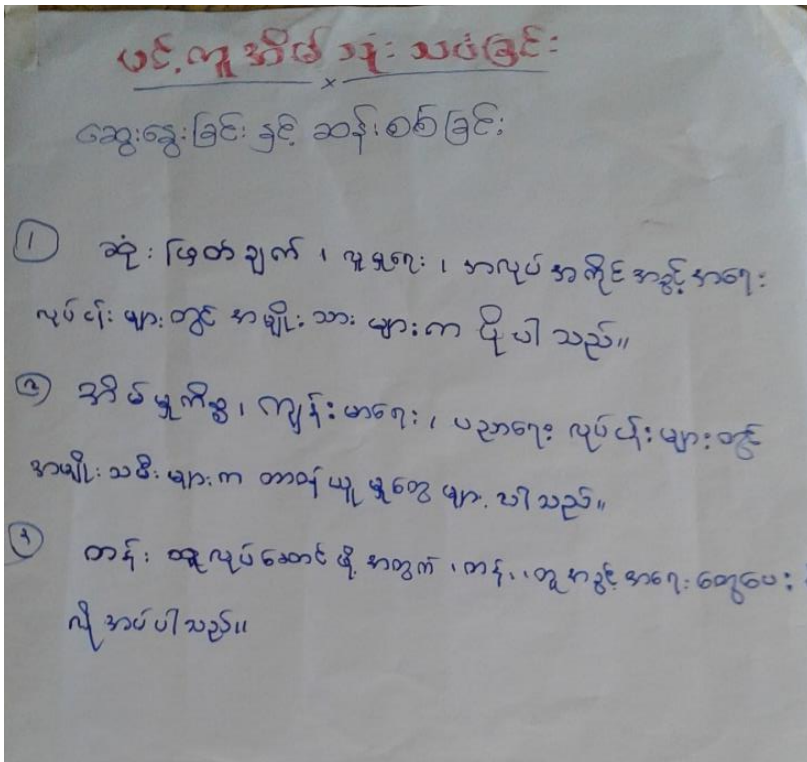 ပင့်ကူအိမ်သုံးသပ်ခြင်း
ဆွေးနွေးခြင်း နှင့် ဆန်းစစ်ခြင်း
① ဆုံးဖြတ်ချက်၊ လူမှုရေး၊ အလုပ်အကိုင်အခွင့်အရေး
လုပ်ငန်းများတွင် အမျိုးသားများက ပိုပါသည်။
② အိမ်မှုကိစ္စ၊ ကျန်းမာရေး၊ ပညာရေး လုပ်ငန်းများတွင်
အမျိုးသမီးများက တာဝန်ယူမှုတွေများပါသည်။
③ တန်းတူလုပ်ဆောင်ဖို့အတွက်၊ တန်းတူအခွင့်အရေးတွေပေး
လိုအပ်ပါသည်။